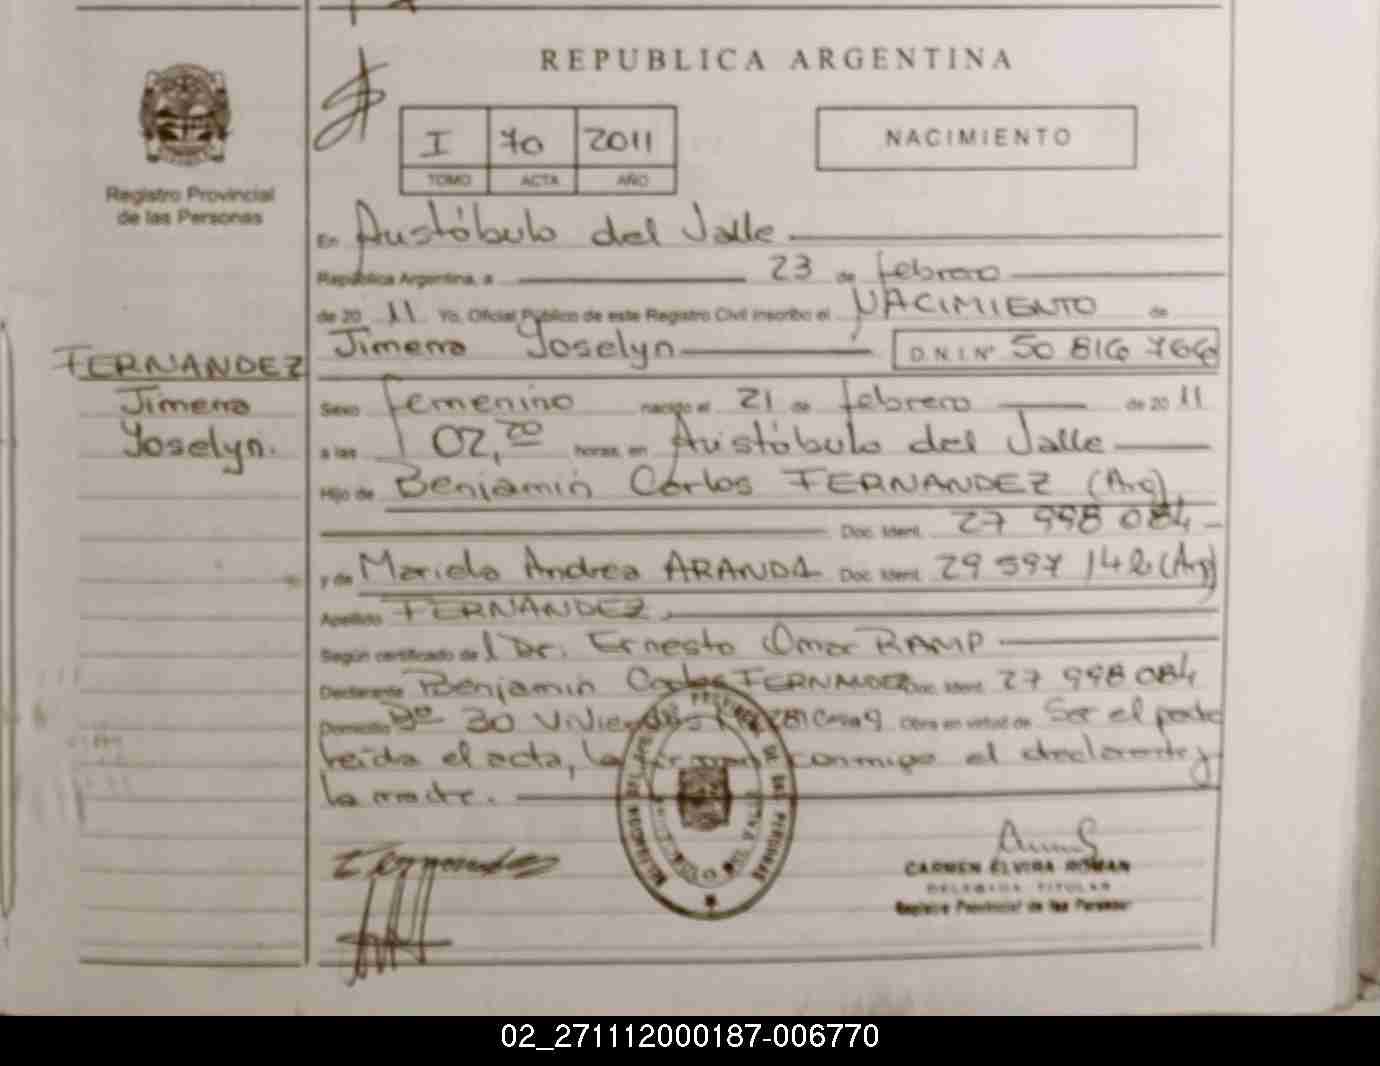 REPUBLICA ARGENTINA
I 70 2011
TOMO ACTA AÑO
NACIMIENTO
Registro Provincial
de las Personas
En Aristóbulo del Valle
República Argentina, a 23 de febrero
de 20 11 Yo, Oficial Público de este Registro Civil inscribo el NACIMIENTO de
Jimena Yoselyn D.N.I.Nº 50 816 766
FERNANDEZ
Jimena
Yoselyn.
Sexo femenino nacido el 21 de febrero de 20 11
a las 02,20 horas en Aristóbulo del Valle
Hijo de Benjamin Carlos FERNANDEZ (Arg)
Doc. Ident. 27 998 084
y de Mariela Andrea ARANDA Doc. Ident. 29 597 142 (Arg)
Apellido FERNANDEZ
Según certificado del Dr. Ernesto Omar RAMP
Declarante Benjamin Carlos FERNANDEZ Doc. Ident. 27 998 084
Domicilio Bº 30 Viviendas Casa 9 Obra en virtud de Ser el padre
leída el acta, la firman conmigo el declarante y
la madre.
Fernandez
CARMEN ELVIRA ROMAN
DELEGADA TITULAR
Registro Provincial de las Personas
02_271112000187-006770